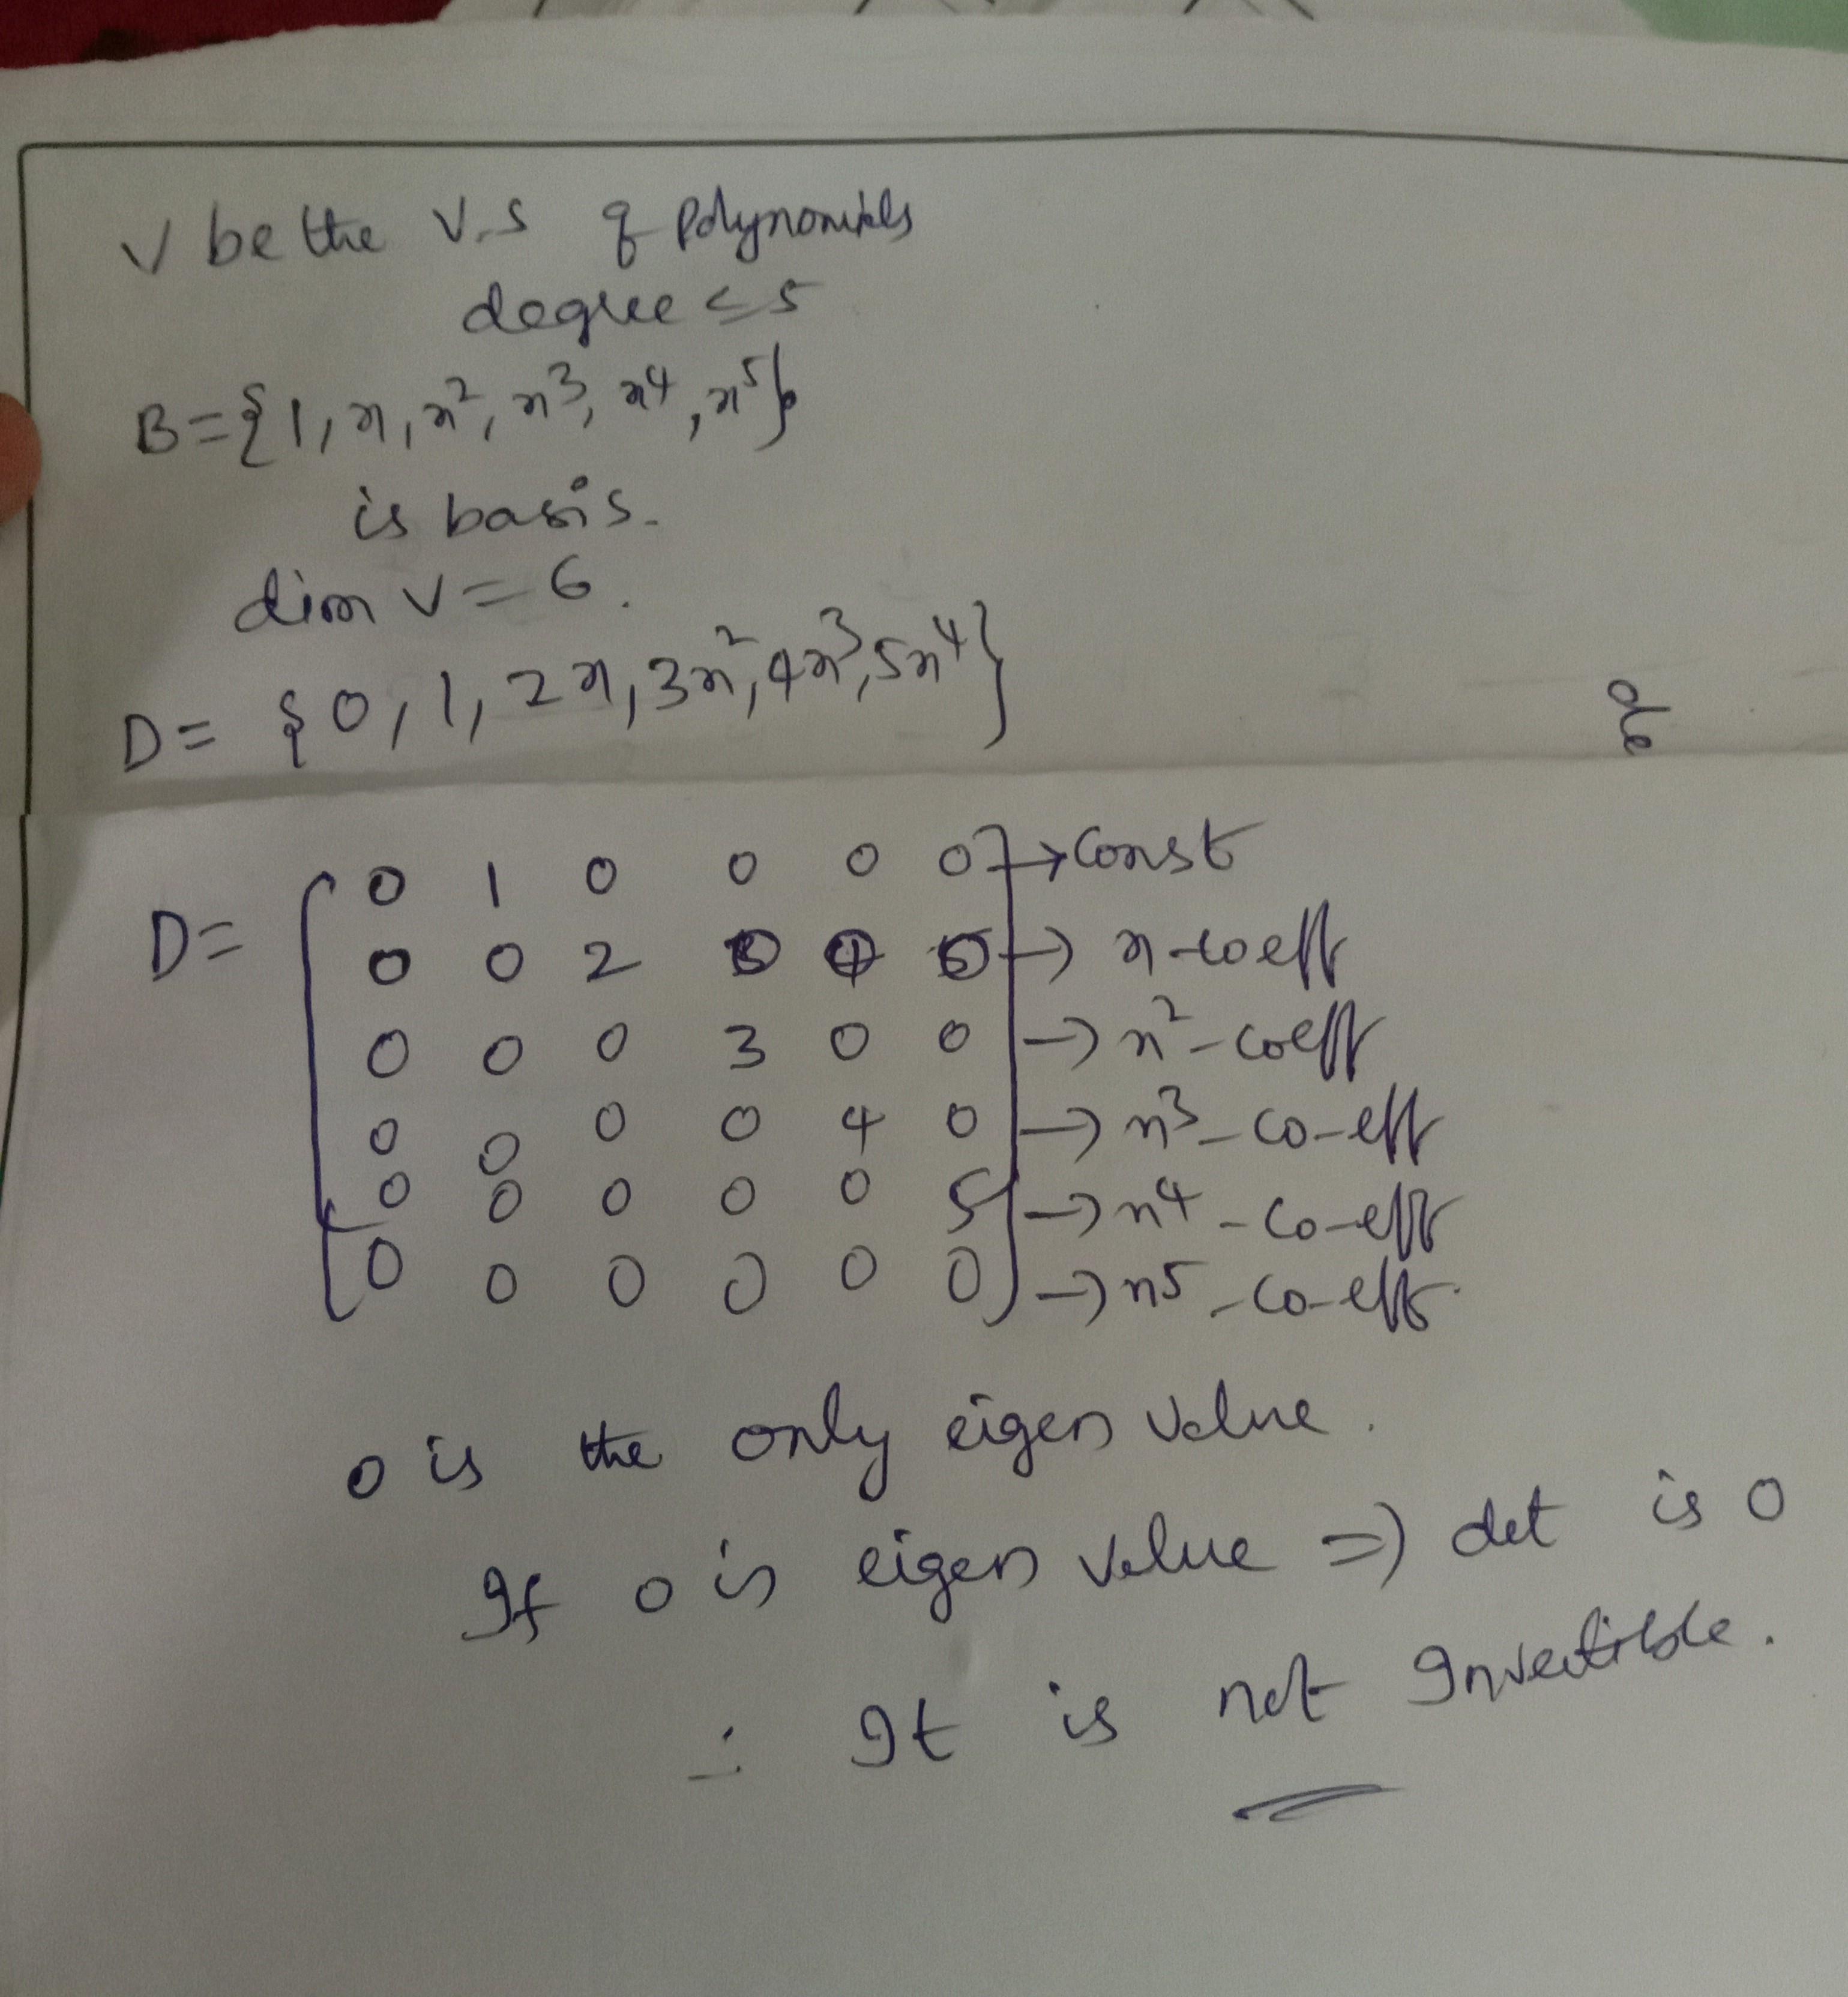 V be the V.S of Polynomials
degree ≤ 5
B = {1, x, x², x³, x⁴, x⁵}
is basis.
dim V = 6.
D = {0, 1, 2x, 3x², 4x³, 5x⁴}
D = [ 0 1 0 0 0 0 ] → Const
0 0 2 0 0 0 → x-coeff
0 0 0 3 0 0 → x²-coeff
0 0 0 0 4 0 → x³-co-eff
0 0 0 0 0 5 → x⁴-co-eff
0 0 0 0 0 0 → x5-co-eff.
0 is the only eigen value.
If 0 is eigen value ⇒ det is 0
∴ It is not Invertible.